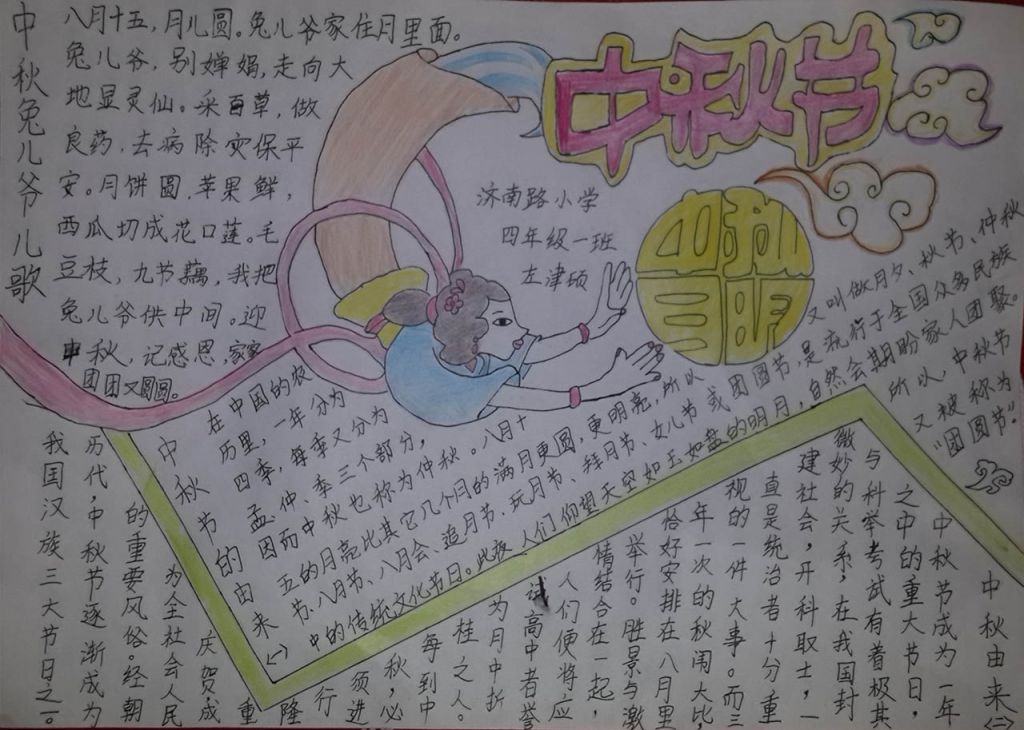 中秋节
中秋兔儿爷儿歌
八月十五，月儿圆。兔儿爷家住月里面。
兔儿爷，别婵娟，走向大
地显灵仙。采百草，做
良药，去病除灾保平
安。月饼圆，苹果鲜，
西瓜切成花口莲。毛
豆枝，九节藕，我把
兔儿爷供中间。迎
中秋，记感恩，家家
团团又圆圆。
济南路小学
四年级一班
左津硕
中秋节的由来
(一)
在中国的农
历里，一年分为
四季，每季又分为
孟、仲、季三个部分，
因而中秋也称为仲秋。八月十
五的月亮比其它几个月的满月更圆，更明亮，所以
又叫做月夕、秋节、仲秋
节、八月节、八月会、追月节、玩月节、拜月节、女儿节或团圆节，是流行于全国众多民族
中的传统文化节日。此夜，人们仰望天空如玉如盘的明月，自然会期盼家人团聚。
所以，中秋节
又被称为
“团圆节”。
中秋由来(二)
中秋节成为一年
之中的重大节日，
与科举考试有着极其
微妙的关系，在我国封
建社会，开科取士，一
直是统治者十分重
视的一件大事。而三
年一次的秋闱大比，
恰好安排在八月里
举行。胜景与激
情结合在一起，
人们便将应
试高中者誉
为月中折
桂之人。
每到中
秋，必
须进
行
隆
重
庆贺，成
为全社会人民
的重要风俗，经朝
历代，中秋节逐渐成为
我国汉族三大节日之一。